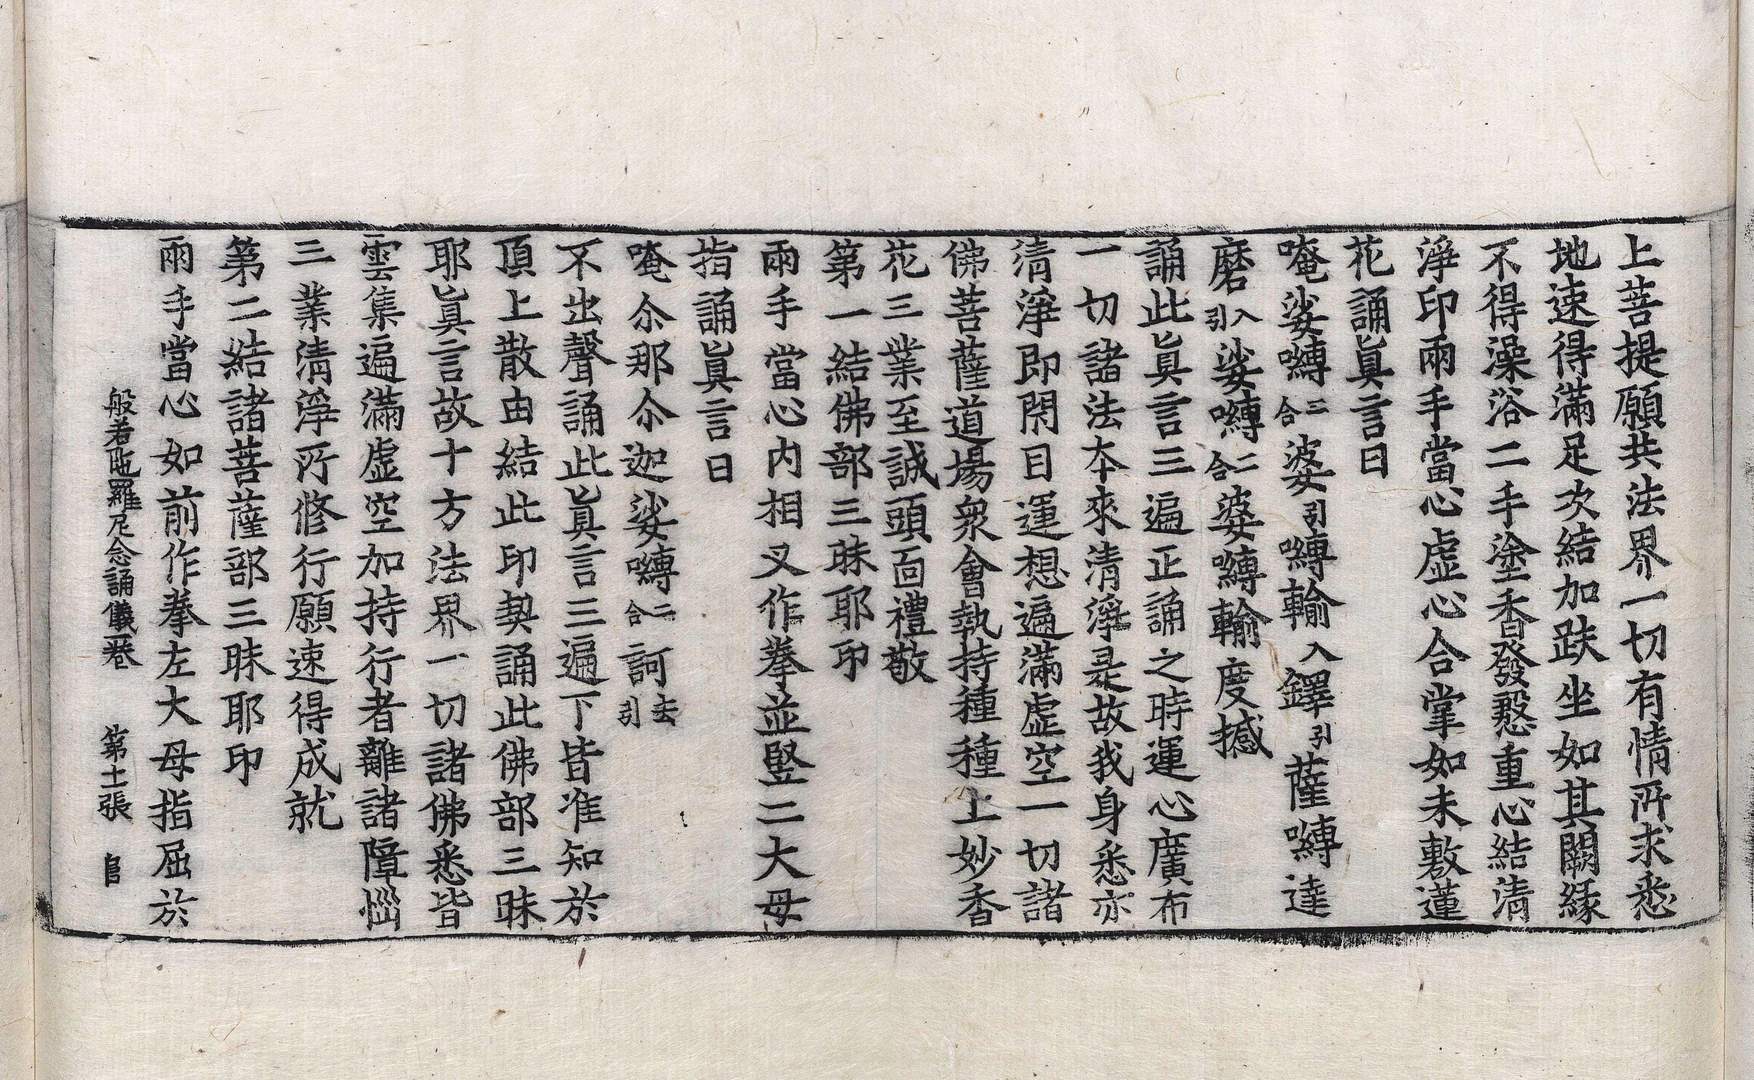 上菩提願共法界一切有情所求悉
地速得滿足次結加趺坐如其闕緣
不得澡浴二手塗香發慇重心結清
淨印兩手當心虛心合掌如未敷蓮
花誦眞言曰
唵娑嚩二合婆引嚩輸入鐸引薩嚩達
磨入引娑嚩二合婆嚩輸度撼
誦此眞言三遍正誦之時運心廣布
一切諸法本來清淨是故我身悉亦
清淨即閉目運想遍滿虛空一切諸
佛菩薩道場衆會執持種種上妙香
花三業至誠頭面禮敬
第一結佛部三昧耶印
兩手當心內相叉作拳並竪二大母
指誦眞言曰
唵尒那尒迦娑嚩二合訶去引
不出聲誦此眞言三遍下皆准知於
頂上散由結此印契誦此佛部三昧
耶眞言故十方法界一切諸佛悉皆
雲集遍滿虛空加持行者離諸障惱
三業清淨所修行願速得成就
第二結諸菩薩部三昧耶印
兩手當心如前作拳左大母指屈於
般若陁羅尼念誦儀卷 第十一張